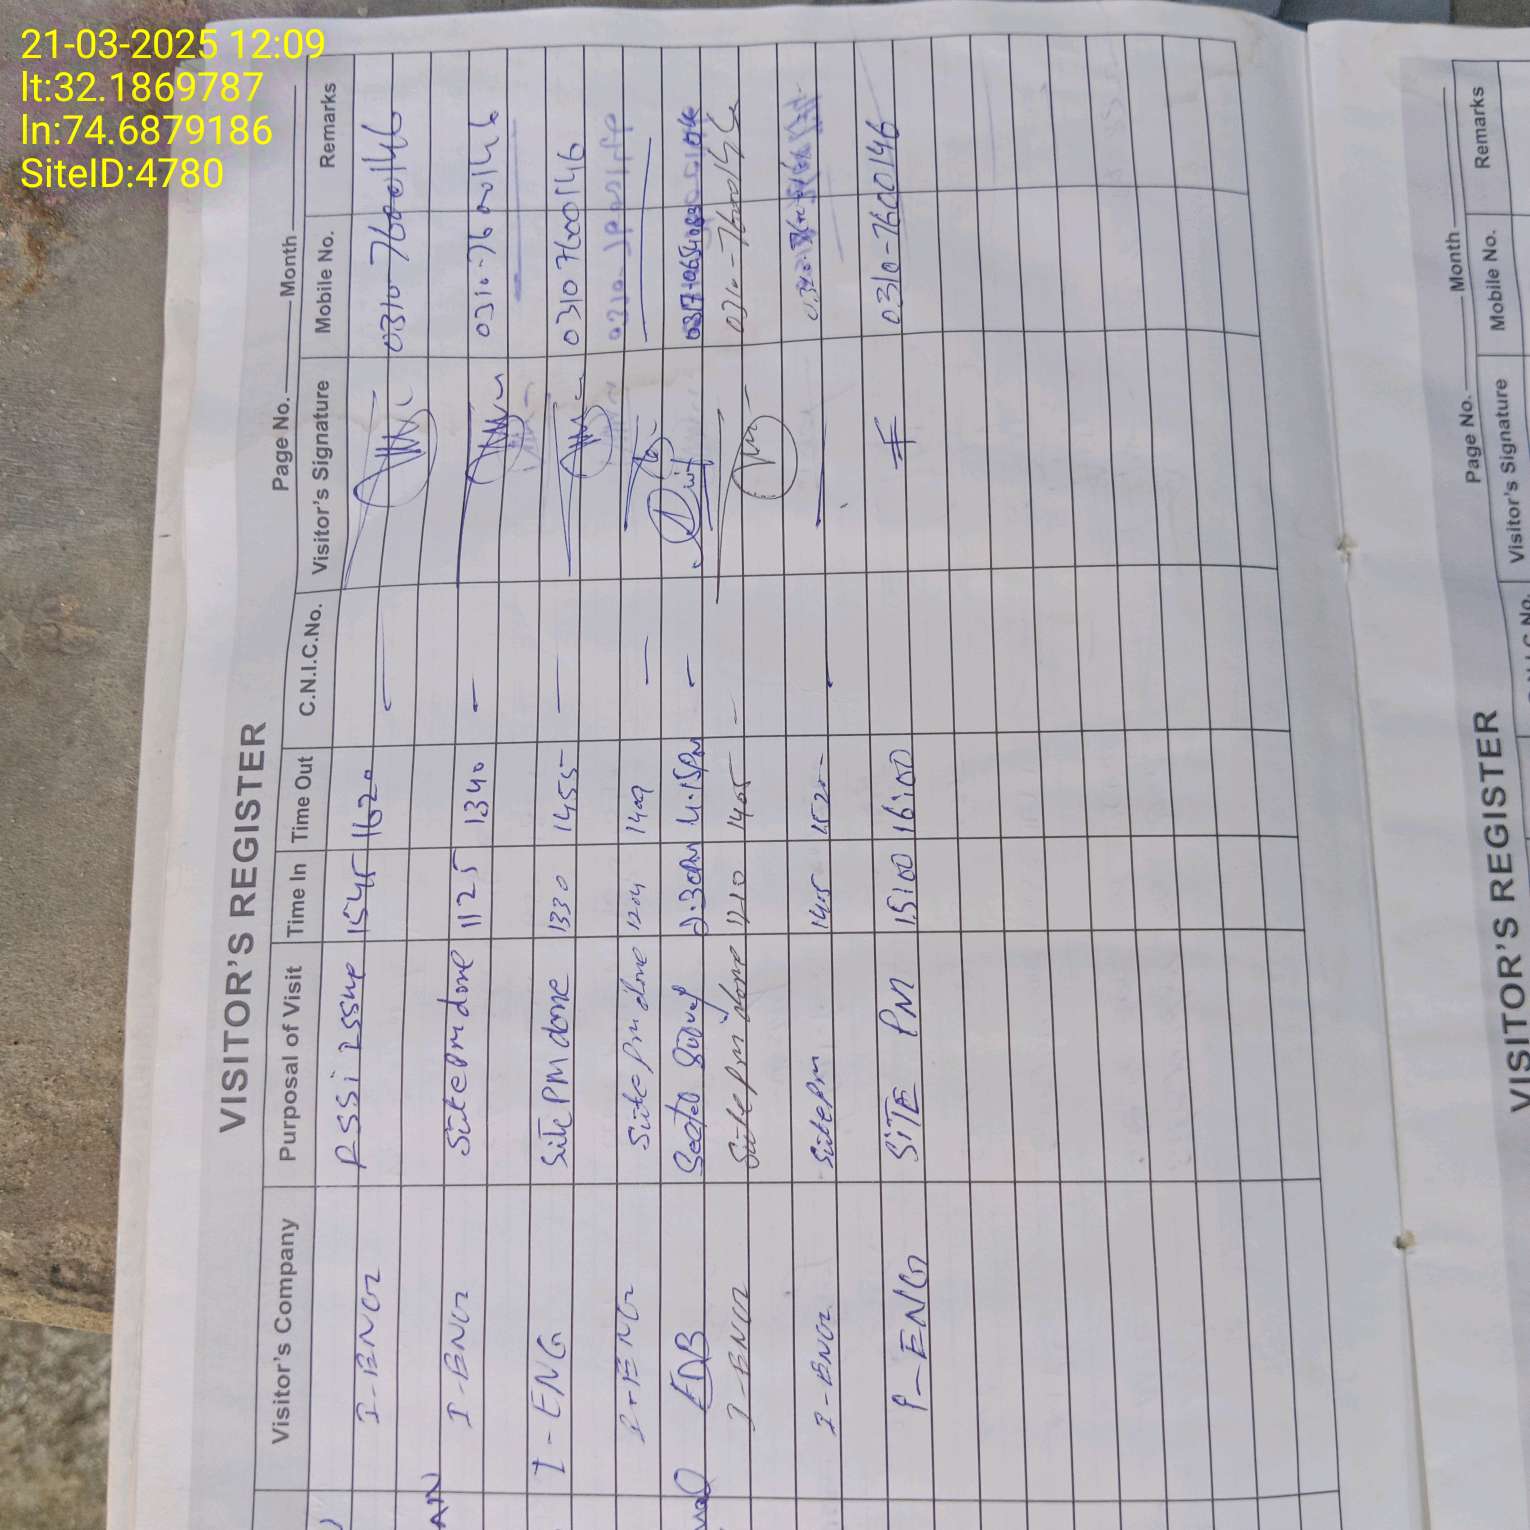 21-03-2025 12:09
lt:32.1869787
ln:74.6879186
SiteID:4780
VISITOR'S REGISTER
Page No. Month
Visitor's Company Purposal of Visit Time In Time Out C.N.I.C.No. Visitor's Signature Mobile No. Remarks
I-ENG RSSi issue 1545 1620 — 0310-7600146
AN I-ENG Site Pm done 1125 1340 — 0310-7600146
I-ENG Site PM done 1330 1455 — 03107600146
I-ENG Site Pm done 1204 1409 —
EDB 2:30PM 4:15PM —
I-ENG Site Pm done 1210 1405 —
I-ENG Site Pm 1405 1520
I-ENG SITE PM 15:00 16:00 0310-7600146
VISITOR'S REGISTER
Page No. Month
Visitor's Signature Mobile No. Remarks